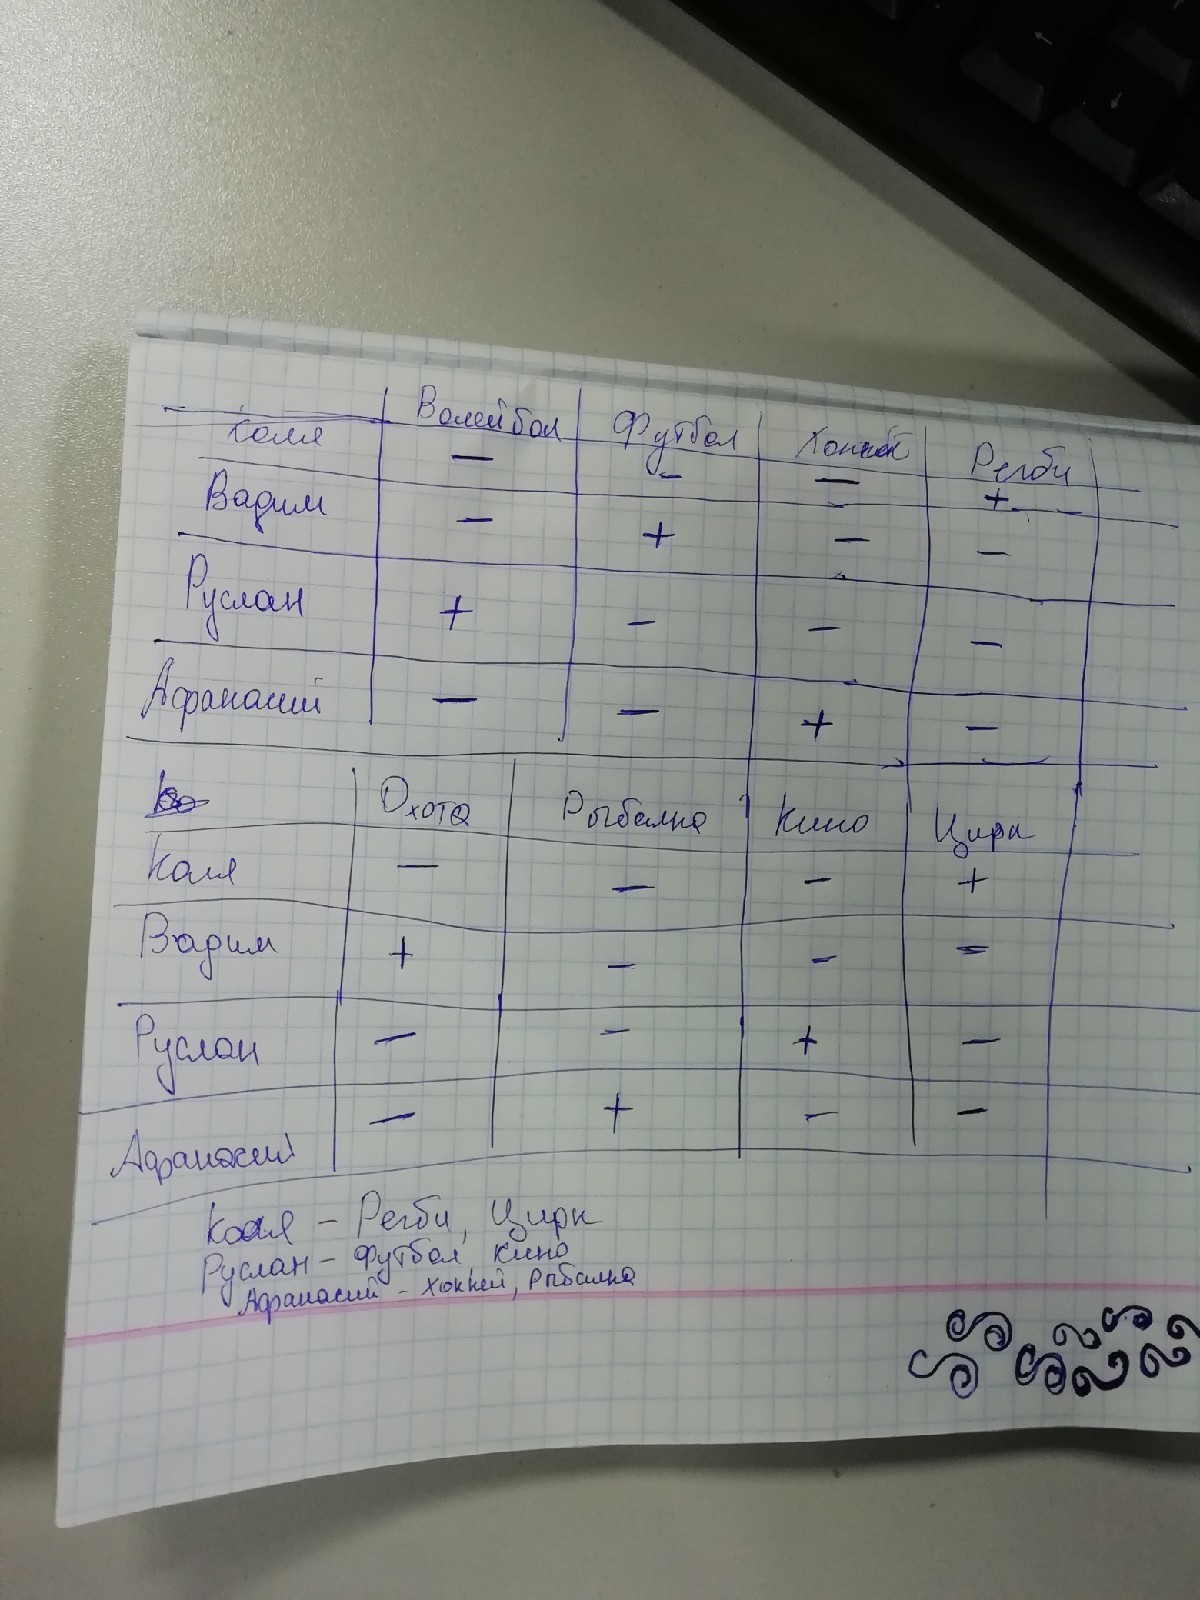 Волейбол Футбол Хоккей Регби
Коля — - — +
Вадим — + — —
Руслан + - — —
Афанасий — — + —
Охота Рыбалка Кино Цирк
Коля — — - +
Вадим + - - =
Руслан — — + —
Афанасий — + - -
Коля - Регби, Цирк
Руслан - Футбол, Кино
Афанасий - Хоккей, Рыбалка